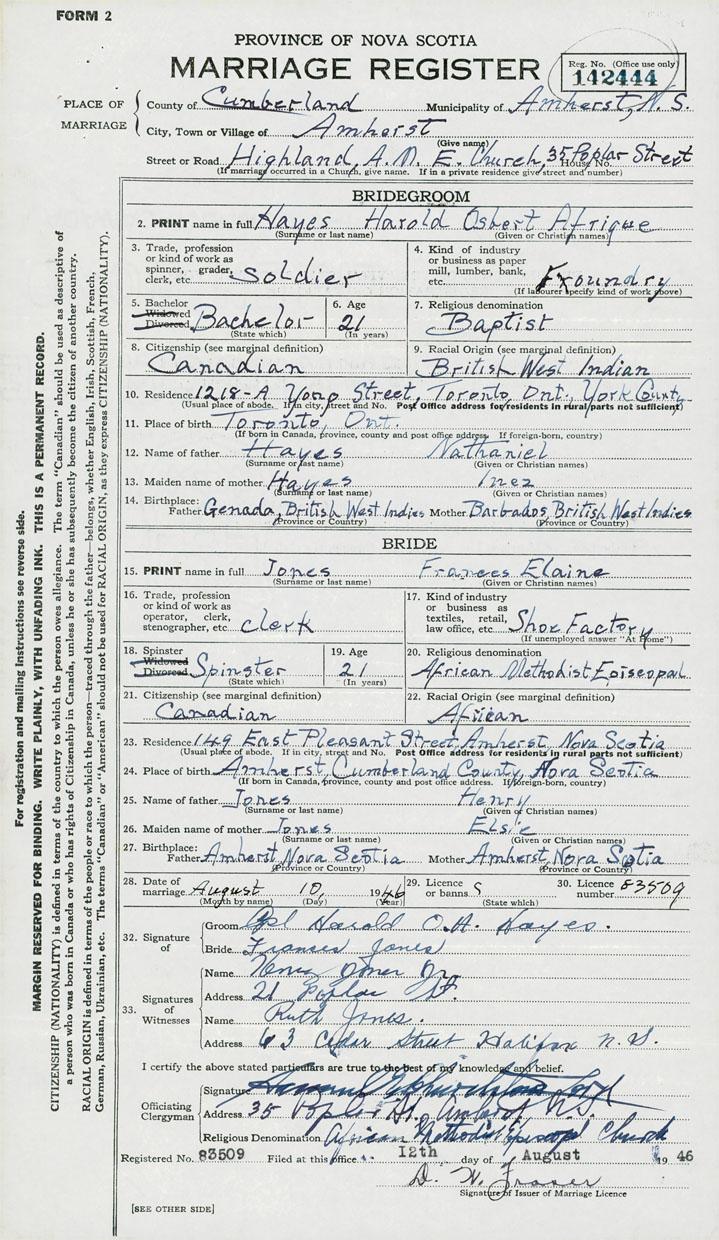 FORM 2
PROVINCE OF NOVA SCOTIA
MARRIAGE REGISTER
Reg. No. (Office use only)
142444
PLACE OF MARRIAGE
County of Cumberland Municipality of Amherst, N. S.
City, Town or Village of Amherst
(Give name)
Street or Road Highland, A. M. E. Church, 35 Poplar Street House No.
(If marriage occurred in a Church, give name. If in a private residence give street and number)
BRIDEGROOM
2. PRINT name in full Hayes Harold Osbert Afrique
(Surname or last name) (Given or Christian names)
3. Trade, profession or kind of work as spinner, grader, clerk, etc. Soldier
4. Kind of industry or business as paper mill, lumber, bank, etc. Froundry
(If labourer specify kind of work above)
5. Bachelor Widowed Divorced Bachelor
(State which)
6. Age 21
(In years)
7. Religious denomination
Baptist
8. Citizenship (see marginal definition)
Canadian
9. Racial Origin (see marginal definition)
British West Indian
10. Residence 1218-A Yong Street, Toronto, Ont., York County
(Usual place of abode. If in city, street and No. Post Office address for residents in rural parts not sufficient)
11. Place of birth Toronto, Ont.
(If born in Canada, province, county and post office address. If foreign-born, country)
12. Name of father Hayes Nathaniel
(Surname or last name) (Given or Christian names)
13. Maiden name of mother Hayes Inez
(Surname or last name) (Given or Christian names)
14. Birthplace: Father Genada, British West Indies Mother Barbados, British West Indies
(Province or Country) (Province or Country)
BRIDE
15. PRINT name in full Jones Frances Elaine
(Surname or last name) (Given or Christian names)
16. Trade, profession or kind of work as operator, clerk, stenographer, etc. Clerk
17. Kind of industry or business as textiles, retail, law office, etc. Shoe Factory
(If unemployed answer "At Home")
18. Spinster Widowed Divorced Spinster
(State which)
19. Age 21
(In years)
20. Religious denomination
African Methodist Episcopal
21. Citizenship (see marginal definition)
Canadian
22. Racial Origin (see marginal definition)
African
23. Residence 149 East Pleasant Street Amherst Nova Scotia
(Usual place of abode. If in city, street and No. Post Office address for residents in rural parts not sufficient)
24. Place of birth Amherst, Cumberland County, Nova Scotia
(If born in Canada, province, county and post office address. If foreign-born, country)
25. Name of father Jones Henry
(Surname or last name) (Given or Christian names)
26. Maiden name of mother Jones Elsie
(Surname or last name) (Given or Christian names)
27. Birthplace: Father Amherst, Nova Scotia Mother Amherst, Nova Scotia
(Province or Country) (Province or Country)
28. Date of marriage August 10, 1946
(Month by name) (Day) (Year)
29. Licence or banns
(State which)
30. Licence number 83509
32. Signature of
Groom Harold O.A. Hayes.
Bride Frances Jones
33. Signatures of Witnesses
Name
Address 21 Poplar St.
Name Ruth Jones.
Address 63 Cedar Street Halifax N. S.
I certify the above stated particulars are true to the best of my knowledge and belief.
Officiating Clergyman
Signature
Address 35 Poplar St., Amherst N.S.
Religious Denomination African Methodist Episcopal Church
Registered No. 83509 Filed at this office 12th day of August 1946
D. W. Fraser
Signature of Issuer of Marriage Licence
[SEE OTHER SIDE]
For registration and mailing instructions see reverse side.
MARGIN RESERVED FOR BINDING. WRITE PLAINLY, WITH UNFADING INK. THIS IS A PERMANENT RECORD.
CITIZENSHIP (NATIONALITY) is defined in terms of the country to which the person owes allegiance. The term "Canadian" should be used as descriptive of
a person who was born in Canada or who has rights of Citizenship in Canada, unless he or she has subsequently become the citizen of another country.
RACIAL ORIGIN is defined in terms of the people or race to which the person—traced through the father—belongs, whether English, Irish, Scottish, French,
German, Russian, Ukrainian, etc. The terms "Canadian" or "American" should not be used for RACIAL ORIGIN, as they express CITIZENSHIP (NATIONALITY).